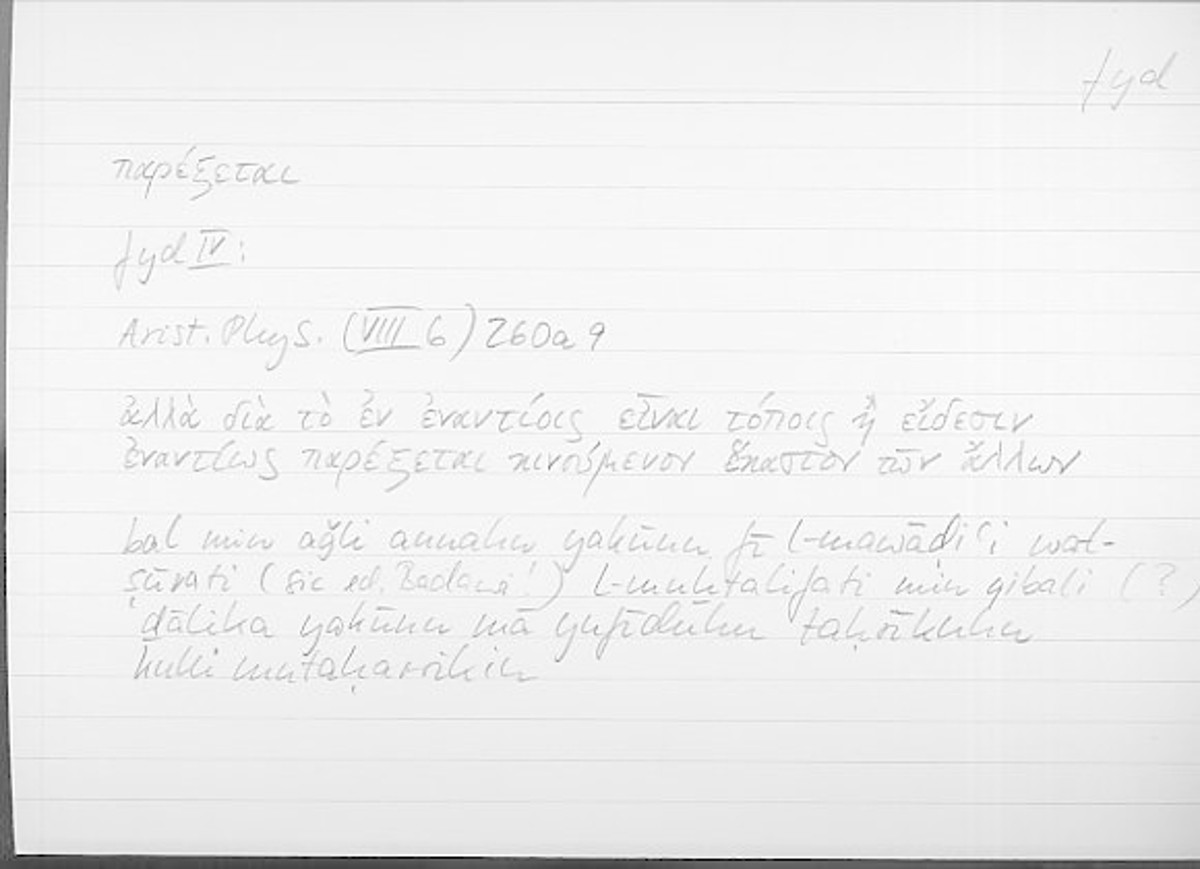 fyd
παρέξεται
fyd IV:
Arist. Phys. (VIII 6) 260a9
ἀλλὰ διὰ τὸ ἐν ἐναντίοις εἶναι τόποις ἢ εἴδεσιν
ἐναντίως παρέξεται κινούμενον ἕκαστον τῶν ἄλλων
bal min aǧli annahu yakūnu fī l-mawāḍiʿi wal-
ṣūrati (sic ed. Badawi!) l-muḫtalifati min qibali (?)
ḏālika yakūnu mā yufīduhu taḥrīkuhu
kulli mutaḥarrikin